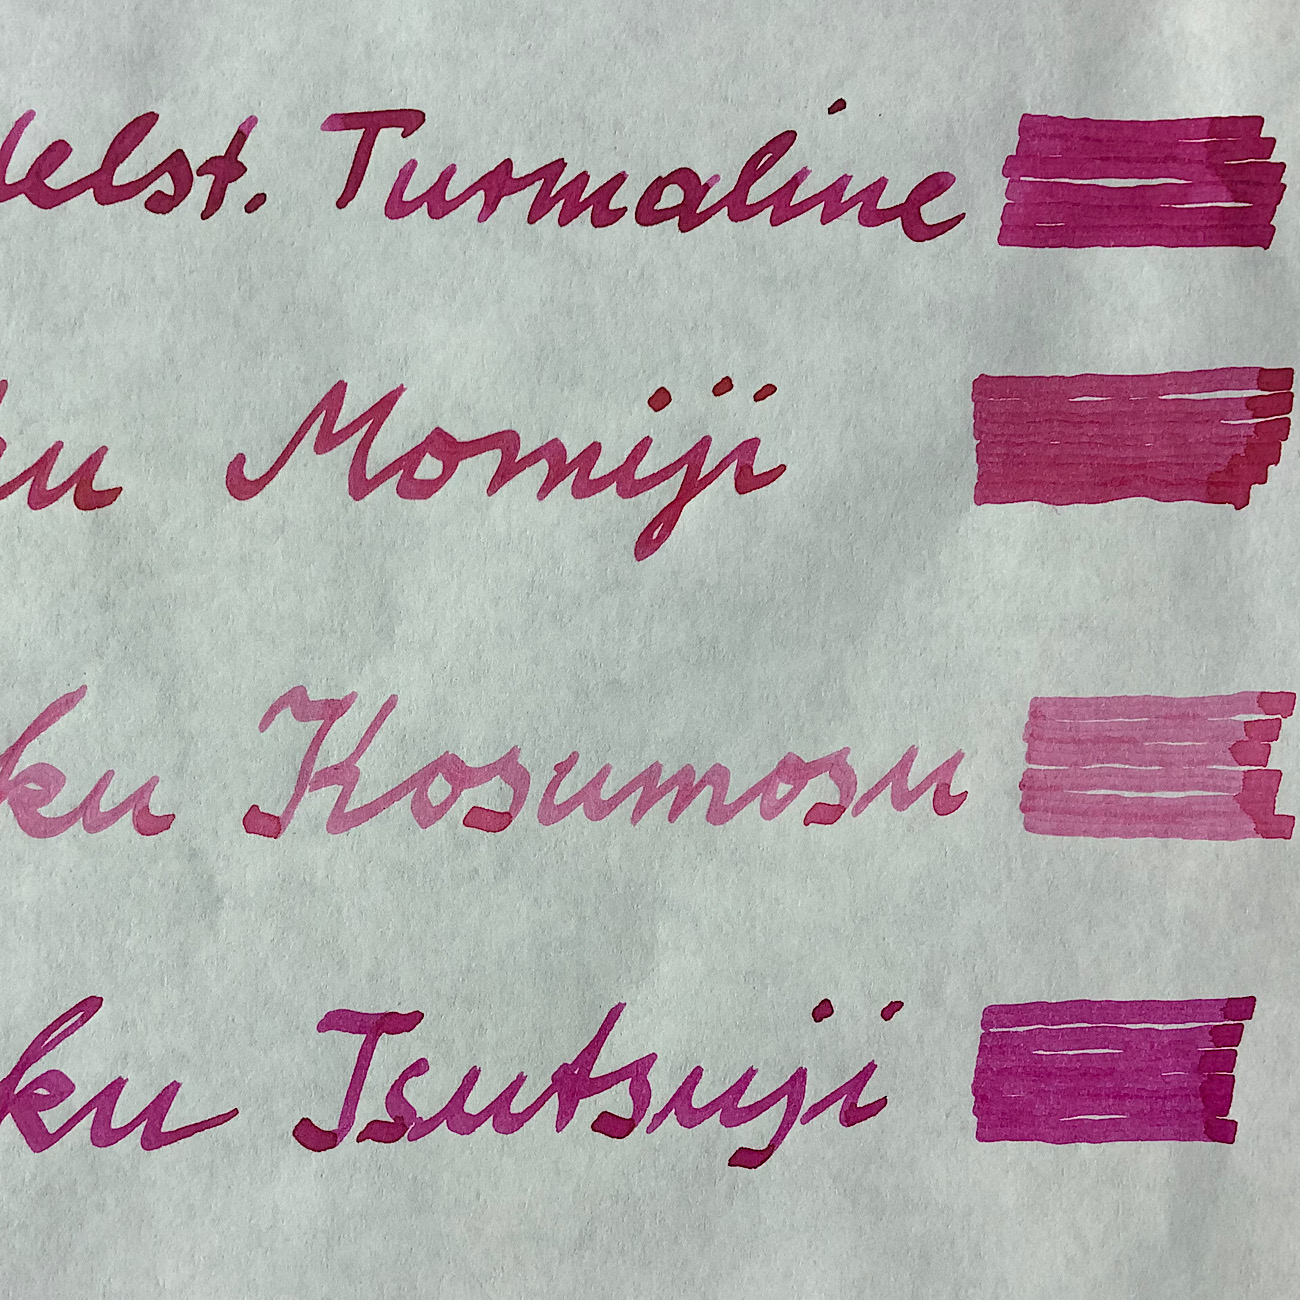 delst. Turmaline
ku Momiji
ku Kosumosu
ku Tsutsuji